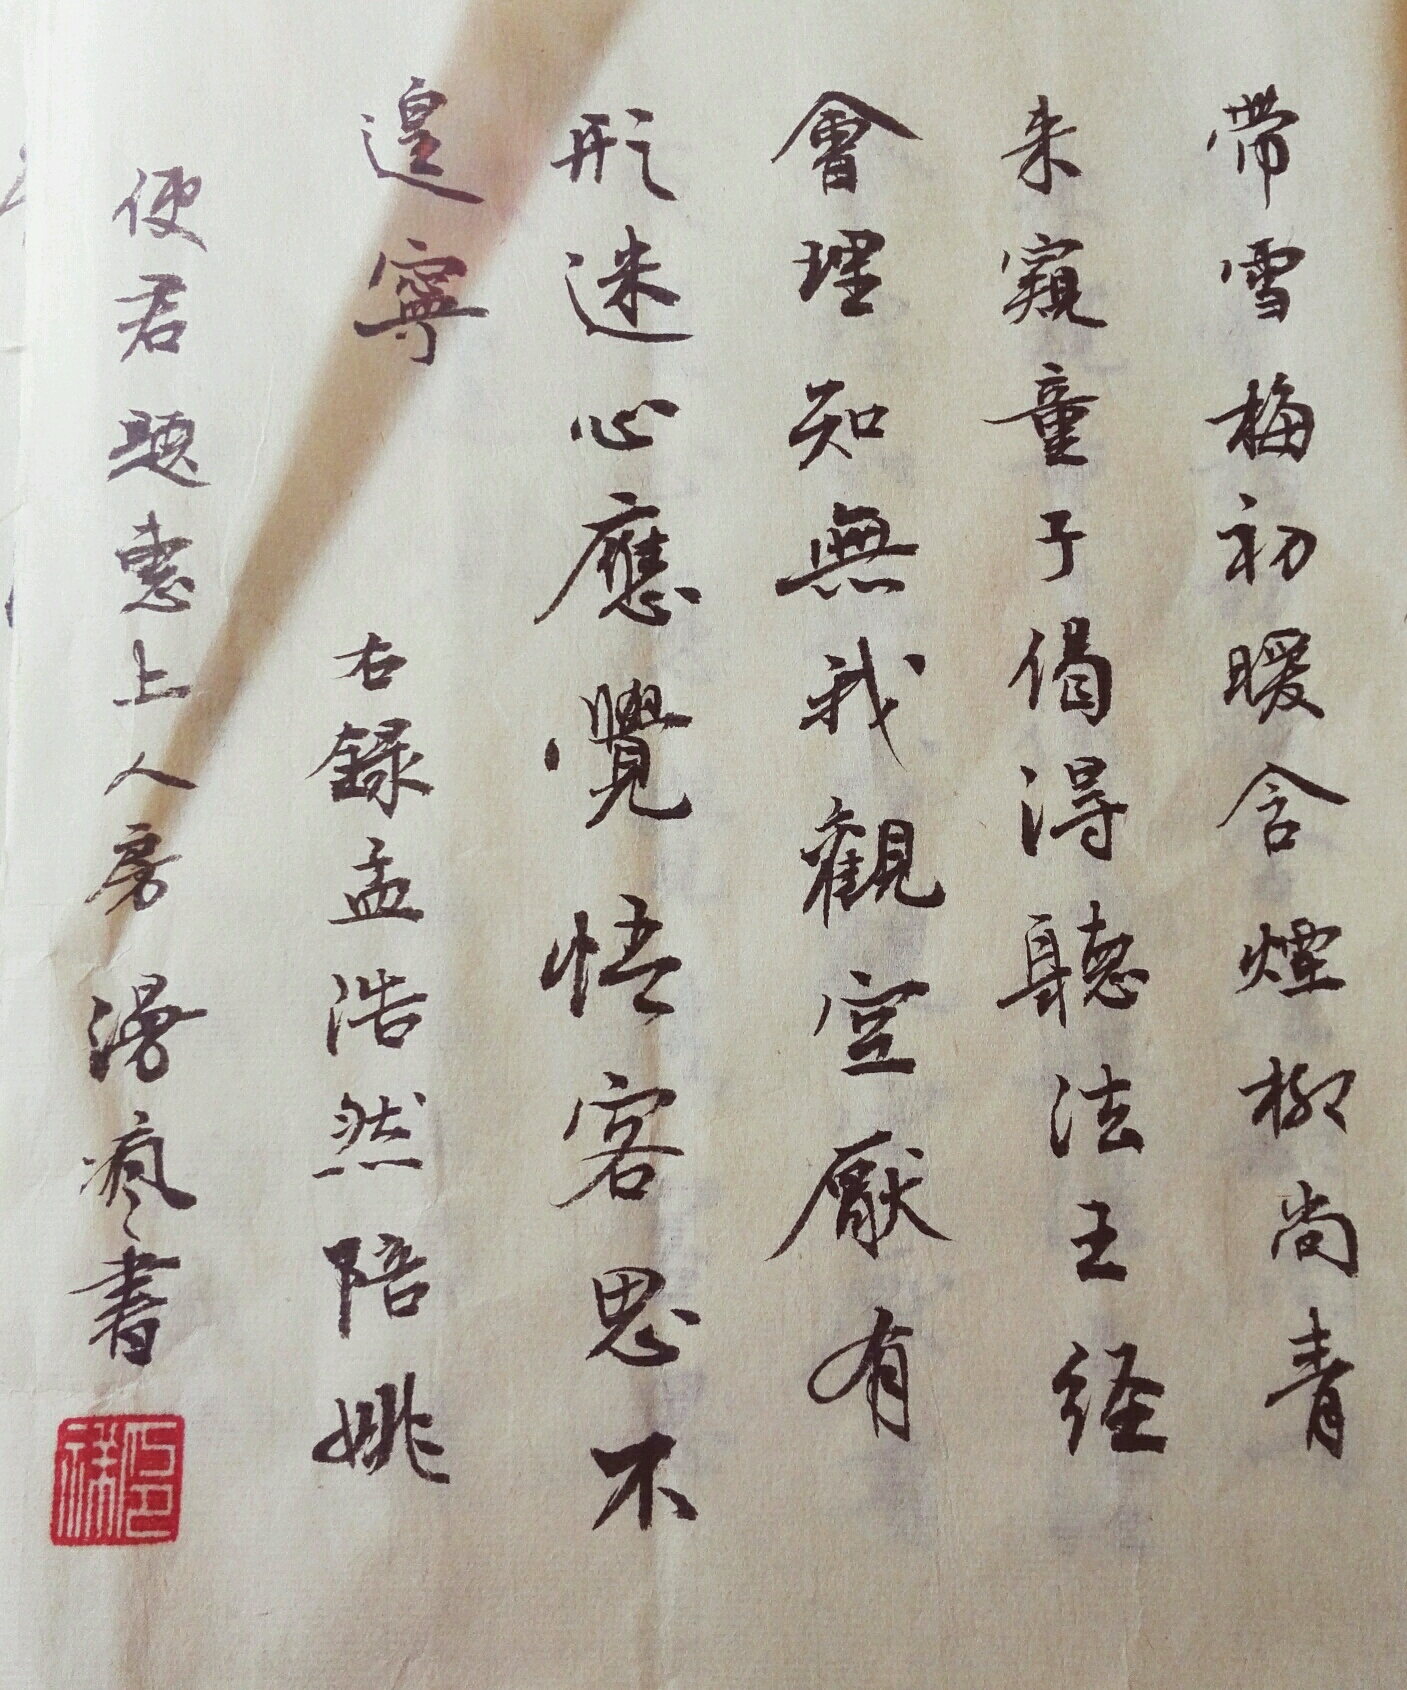 帶雪梅初暖含煙柳尚青
来窺童子偈得聽法王经
會理知無我觀空厭有
形迷心應覺悟客思不
遑寧
右錄孟浩然陪姚
使君題惠上人房漫瘋書